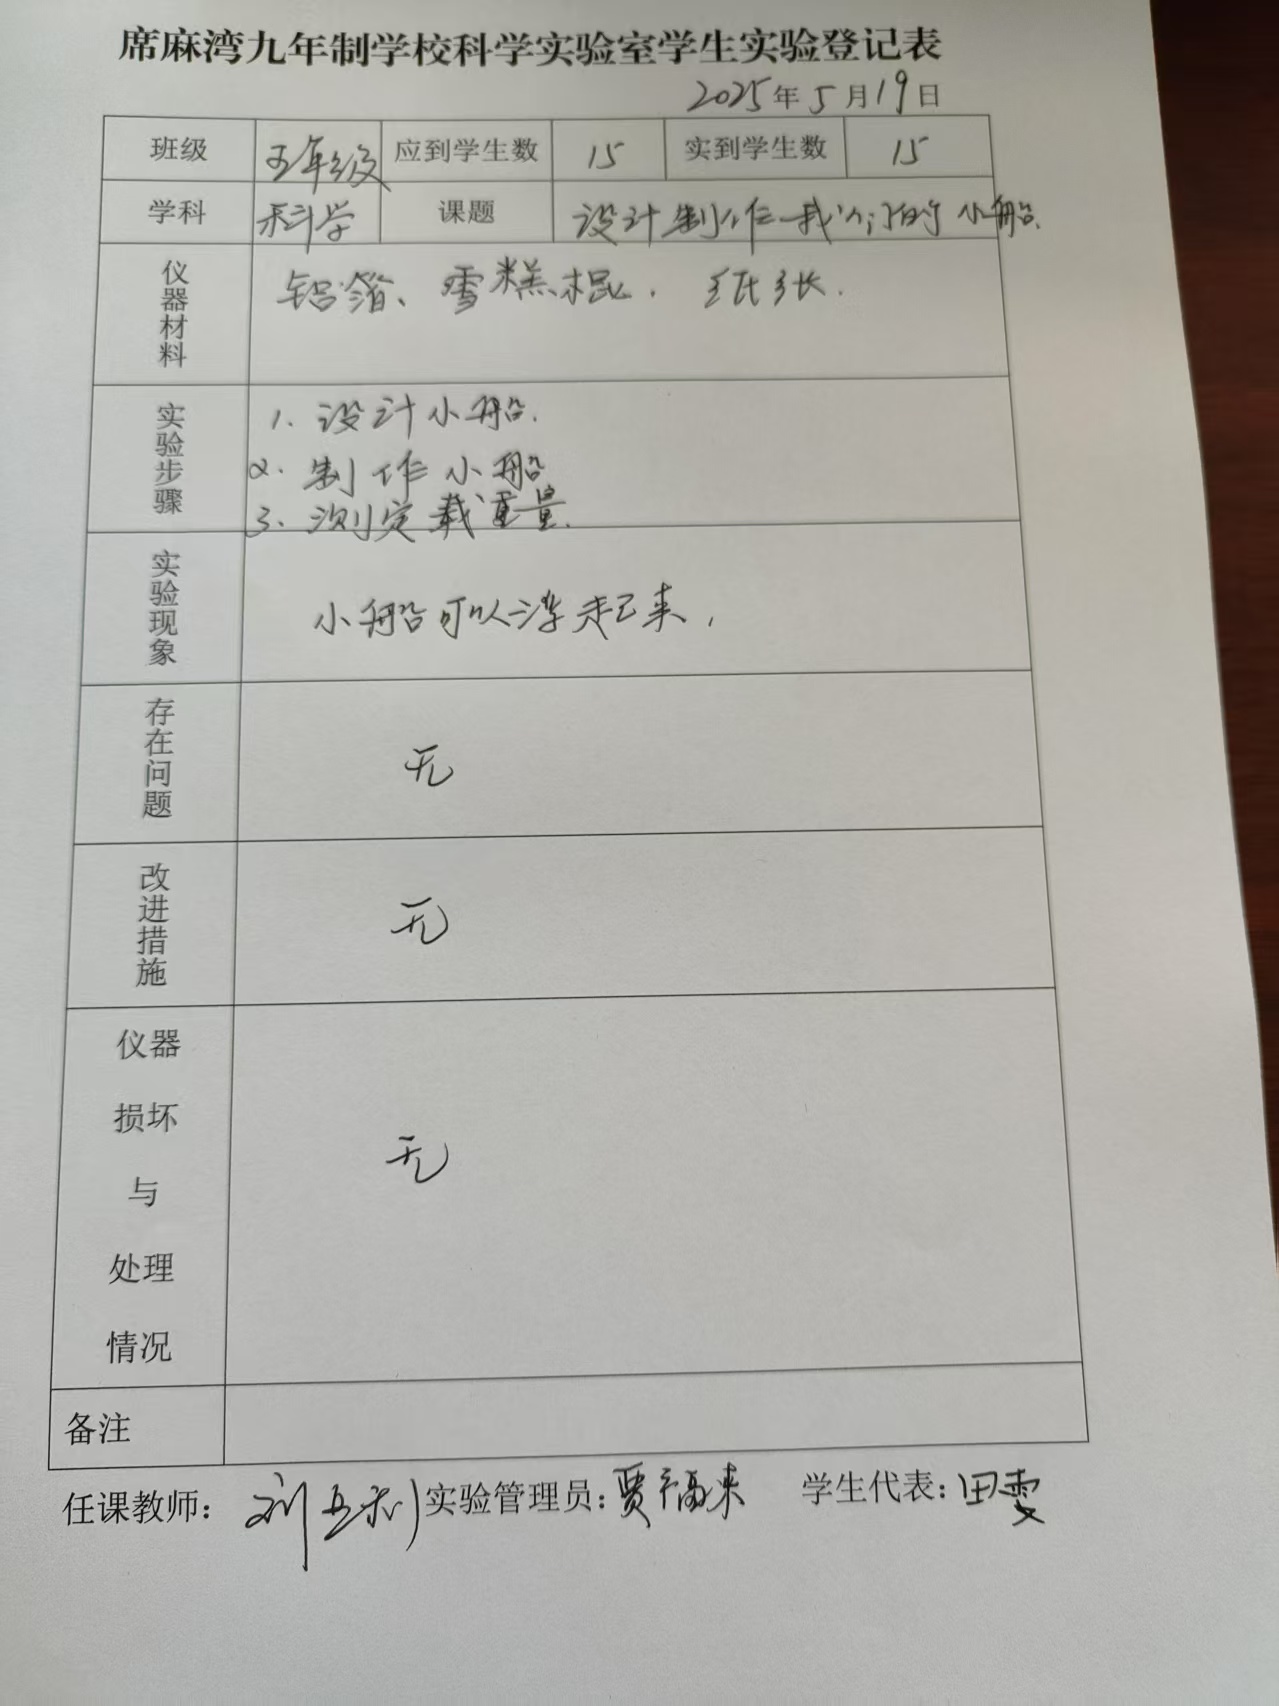 席麻湾九年制学校科学实验室学生实验登记表
2025年5月19日
班级 五年级 应到学生数 15 实到学生数 15
学科 科学 课题 设计制作我们的小船.
仪器材料 铝箔、雪糕棍. 纸张.
实验步骤
1. 设计小船.
2. 制作小船
3. 测定载重量.
实验现象 小船可以浮起来.
存在问题 无
改进措施 无
仪器损坏与处理情况 无
备注
任课教师： 实验管理员：贾福来 学生代表：田雯